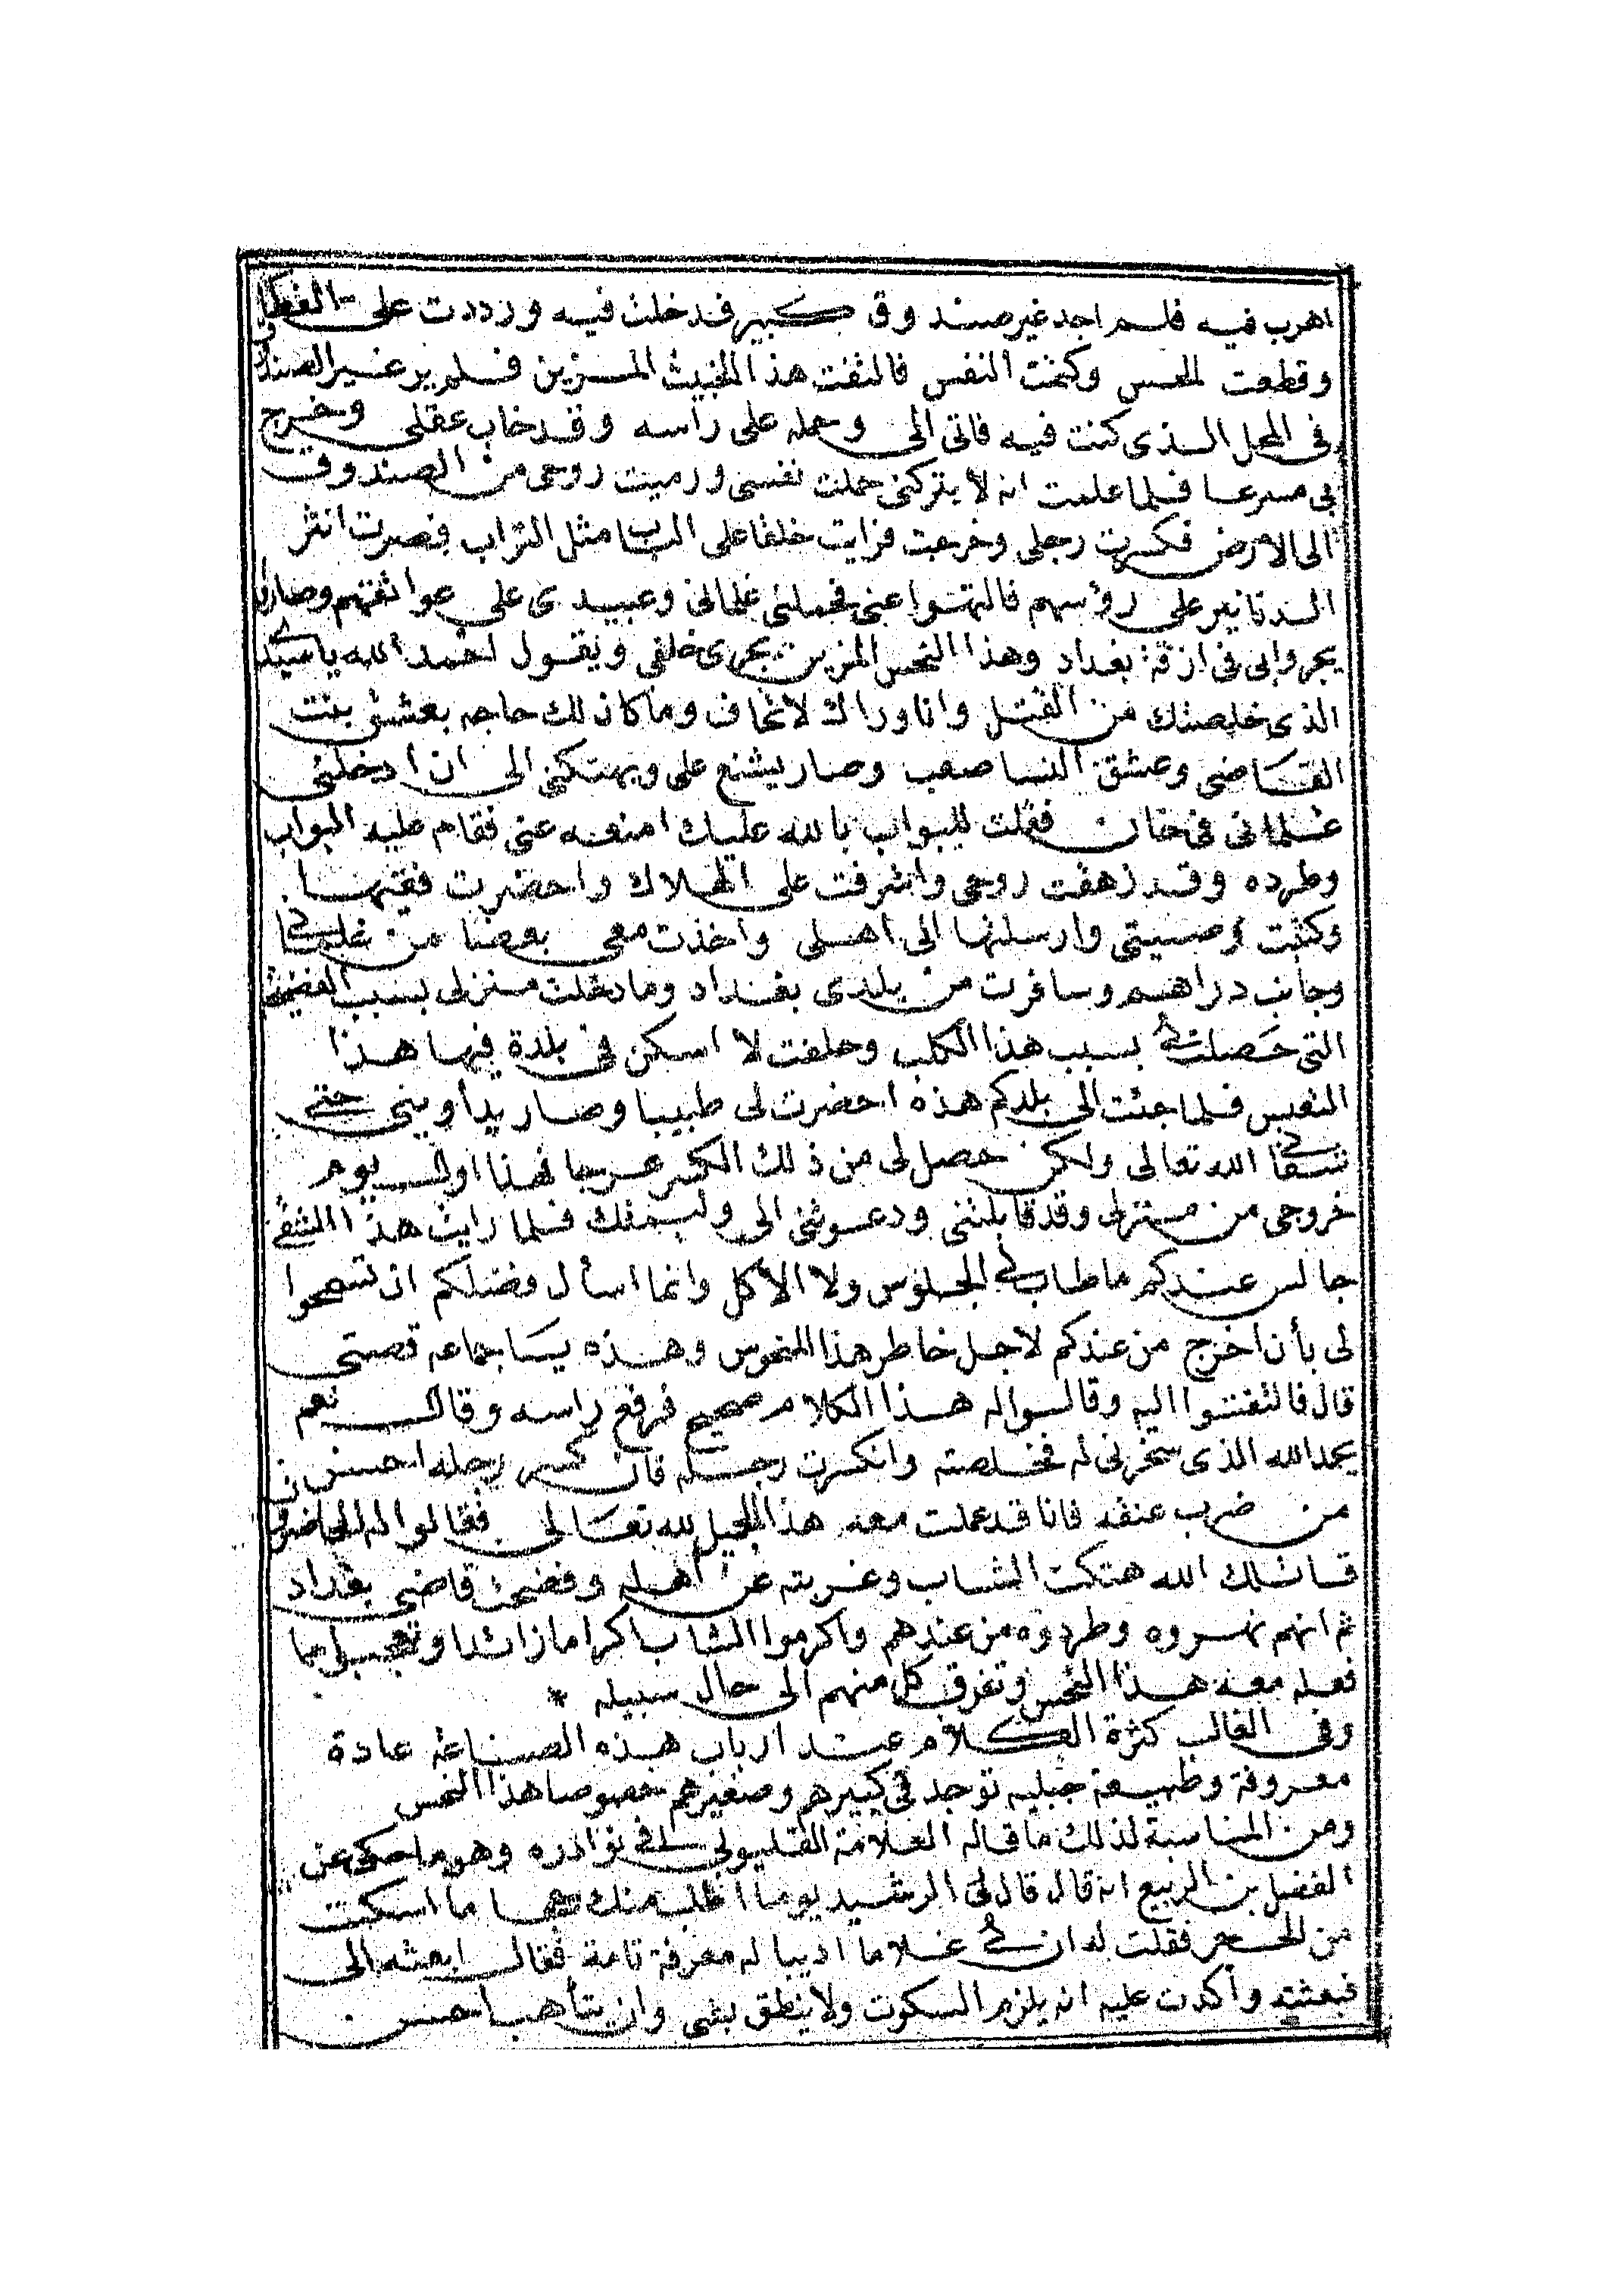 اهرب فيه فلم اجد غير صندوق كبير فدخلت فيه ورددت على الغطا
وقطعت الحس وكتمت النفس فالتفت هذا الخبيث المزين فلم ير غير الصندوق
فى المحل الذى كنت فيه فاتى الى وحمله على راسه وقد خاب عقلى وخرج
بى مسرعا فلما علمت انه لا يتركنى حملت نفسى ورميت روحى من الصندوق
الى الارض فكسرت رجلى وخرجت فرايت خلقا على الباب مثل التراب فصرت انثر
الدنانير على رؤسهم فالتهوا عنى فحملنى غلمانى وعبيدى على عواتقهم وصاروا
يجروا بى فى ازقة بغداد وهذا النحس المزين يجرى خلفى ويقول احمد الله ياسيدى
الذى خلصتك من القتل وانا وراك لا تخاف وما كان لك حاجه بعشق بنت
القاضى وعشق النسا صعب وصار يشنع على ويهتكنى الى ان ادخلنى
غلمانى فى خان فقلت للبواب بالله عليك امنعه عنى فقام عليه البواب
وطرده وقد زهقت روحى واشرفت على الهلاك واحضرت فقيها
وكتبت وصيتى وارسلتها الى اهلى واخذت معى بعضا من غلمانى
وجانب دراهم وسافرت من بلدى بغداد وما دخلت منزلى بسبب الفضيحة
التى حصلت لى بسبب هذا الكلب وحلفت لا اسكن فى بلدة فيها هذا
التعيس فلما جئت الى بلدكم هذه احضرت لى طبيبا وصار يدأوينى حتى
شفانى الله تعالى ولكن حصل لى من ذلك الكسر عرجا فهذا اول يوم
خروجى من منزلى وقد قابلتنى ودعوتنى الى وليمتك فلما رايت هذا الشقى
جالس عندكم ما طاب لى الجلوس ولا الأكل وانما اسأل فضلكم ان تسمحوا
لى بأن اخرج من عندكم لاجل خاطر هذا المنحوس وهذه يا جماعه قصتى
قال فالتفتوا اليه وقالوا له هذا الكلام صحيح فرفع راسه وقال نعم
يحمد الله الذى سخرنى له فخلصته وانكسرت رجله فان كسر رجله احسن
من ضرب عنقه فانا قد عملت معه هذا الجميل لله تعالى فقالوا له الحاضرون
قاتلك الله هتكت الشاب وغربته عن اهله وفضحت قاضى بغداد
ثم انهم نهروه وطردوه من عندهم واكرموا الشاب اكراما زائدا وتعجبوا مما
فعله معه هذا النحس وتفرق كل منهم الى حال سبيله *
وفى الغالب كثرة الكلام عند ارباب هذه الصناعة عادة
معروفة وطبيعة جبليه توجد فى كبيرهم وصغيرهم خصوصا هذا النحس
ومن المناسبة لذلك ما قاله العلامة القليوبى فى نوادره وهو ما حكى عن
الفضل بن الربيع انه قال قال لى الرشيد يوما اطلب منك حجاما اسكت
من الحجر فقلت له ان لى غلاما اديبا له معرفة تامة فقال ابعثه الى
فبعثته وأكدت عليه انه يلزم السكوت ولا ينطق بشى وان يتأهب احسن